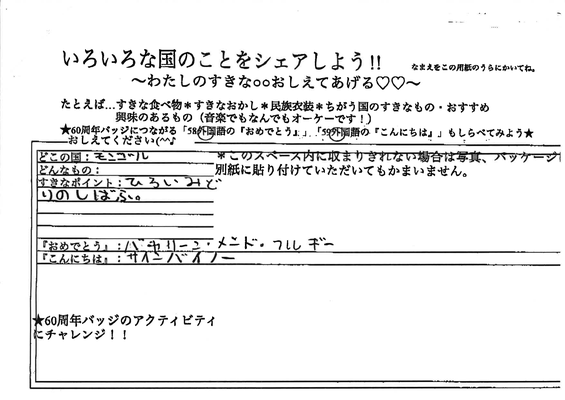 いろいろな国のことをシェアしよう!!
なまえをこの用紙のうらにかいてね。
〜わたしのすきな○○おしえてあげる♡♡〜
たとえば…すきな食べ物＊すきなおかし＊民族衣装＊ちがう国のすきなもの・おすすめ
興味のあるもの（音楽でもなんでもオーケーです！）
★60周年バッジにつながる「58外国語の『おめでとう』」「59外国語の『こんにちは』」もしらべてみよう★
おしえてください(^^♪
どこの国：モンゴル
＊このスペース内に収まりきれない場合は写真、パッケージ
どんなもの：
別紙に貼り付けていただいてもかまいません。
すきなポイント：ひろいみど
りのしばふ。
『おめでとう』：バヤリーン・メンド・フルギー
『こんにちは』：サインバイノー
★60周年バッジのアクティビティ
にチャレンジ！！